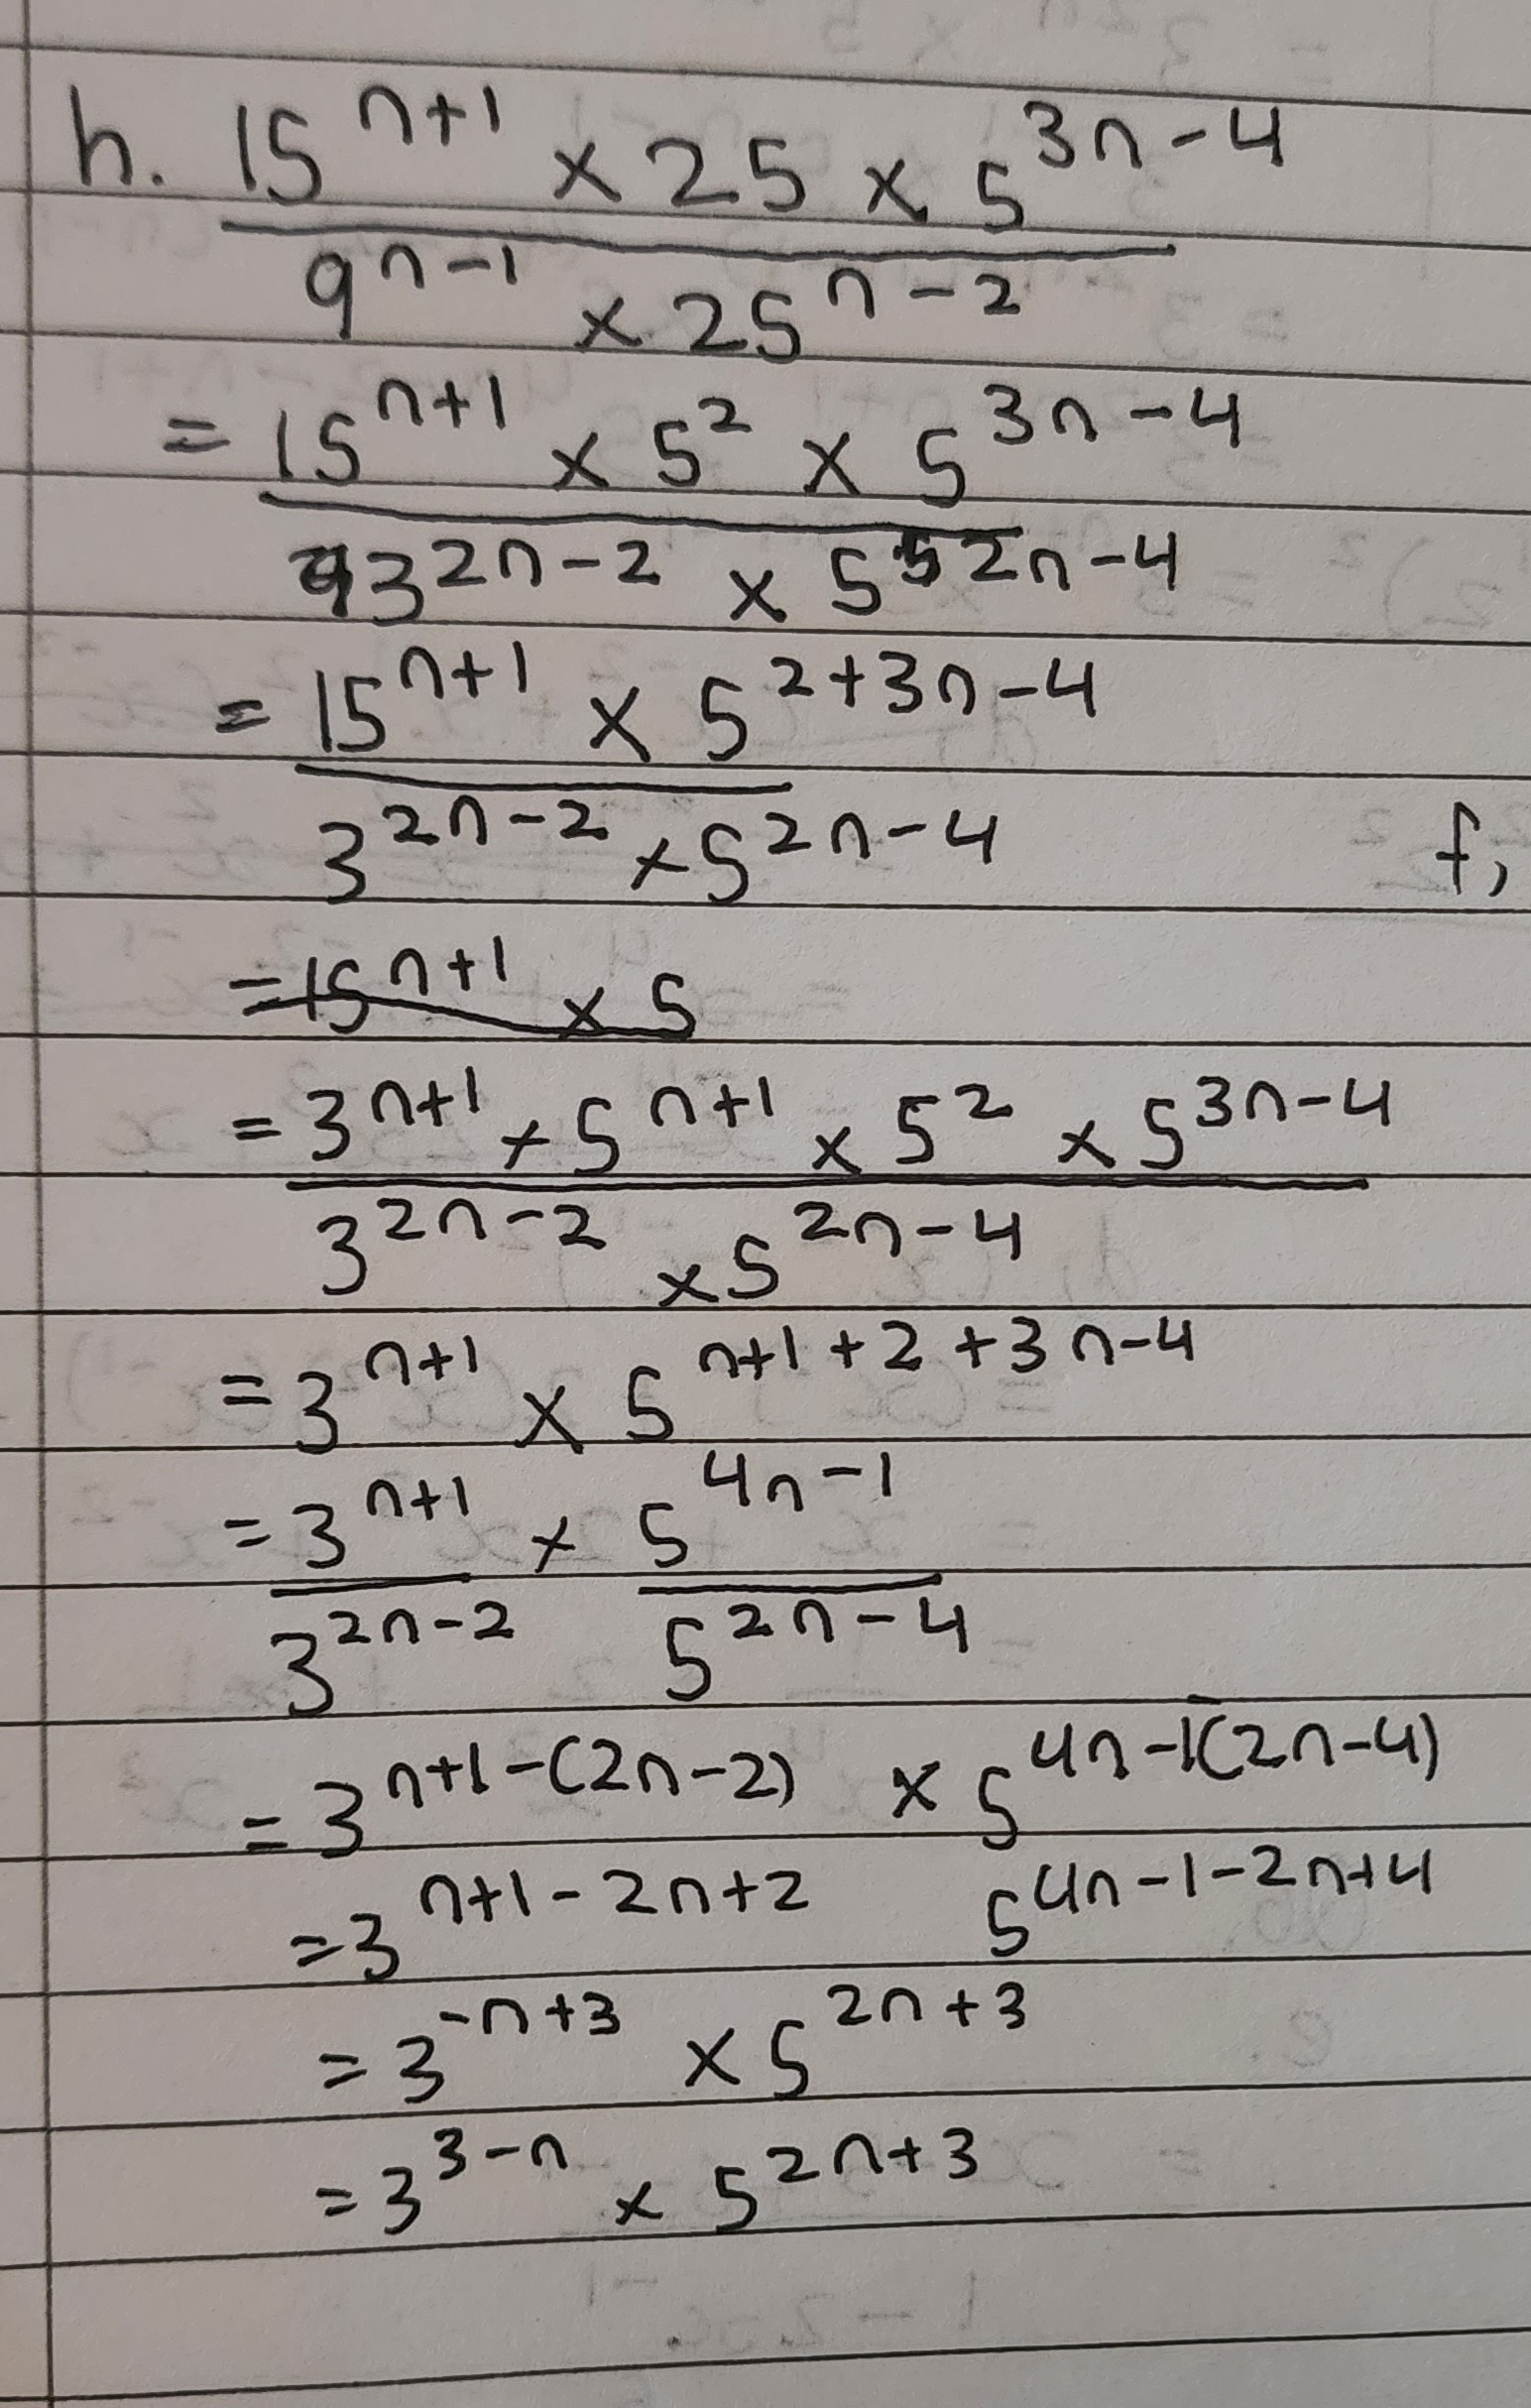 h. 15^(n+1) × 25 × 5^(3n-4)
9^(n-1) × 25^(n-2)
= 15^(n+1) × 5^2 × 5^(3n-4)
3^(2n-2) × 5^(2n-4)
= 15^(n+1) × 5^(2+3n-4)
3^(2n-2) × 5^(2n-4)
f,
= 15^(n+1) × 5
= 3^(n+1) × 5^(n+1) × 5^2 × 5^(3n-4)
3^(2n-2) × 5^(2n-4)
= 3^(n+1) × 5^(n+1+2+3n-4)
= 3^(n+1) × 5^(4n-1)
3^(2n-2) 5^(2n-4)
= 3^(n+1-(2n-2)) × 5^(4n-1(2n-4))
= 3^(n+1-2n+2) 5^(4n-1-2n+4)
= 3^(-n+3) × 5^(2n+3)
= 3^(3-n) × 5^(2n+3)